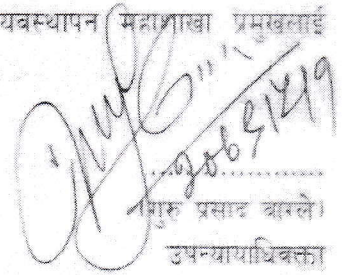 यवस्थापन महाशाखा प्रमुखलाई
२०६९।४।९
गुरु प्रसाद वाग्ले।
उपन्यायाधिवक्ता